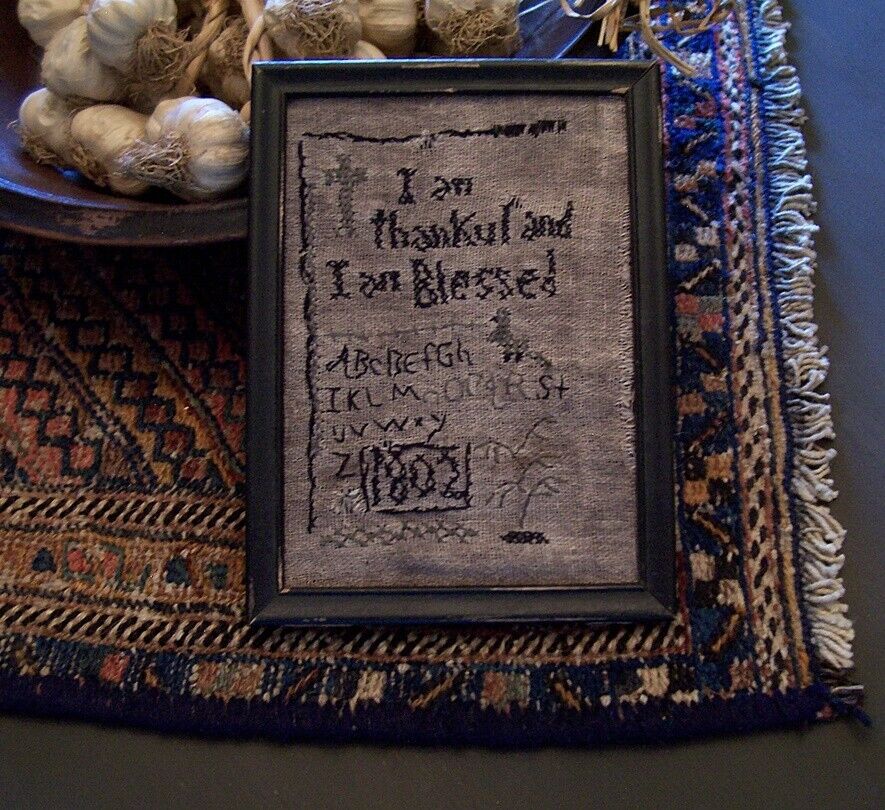 I an
thankul and
I an Blessed
ABcBEfGh
IKLMNOPQRSt
uvWxy
Z 1802